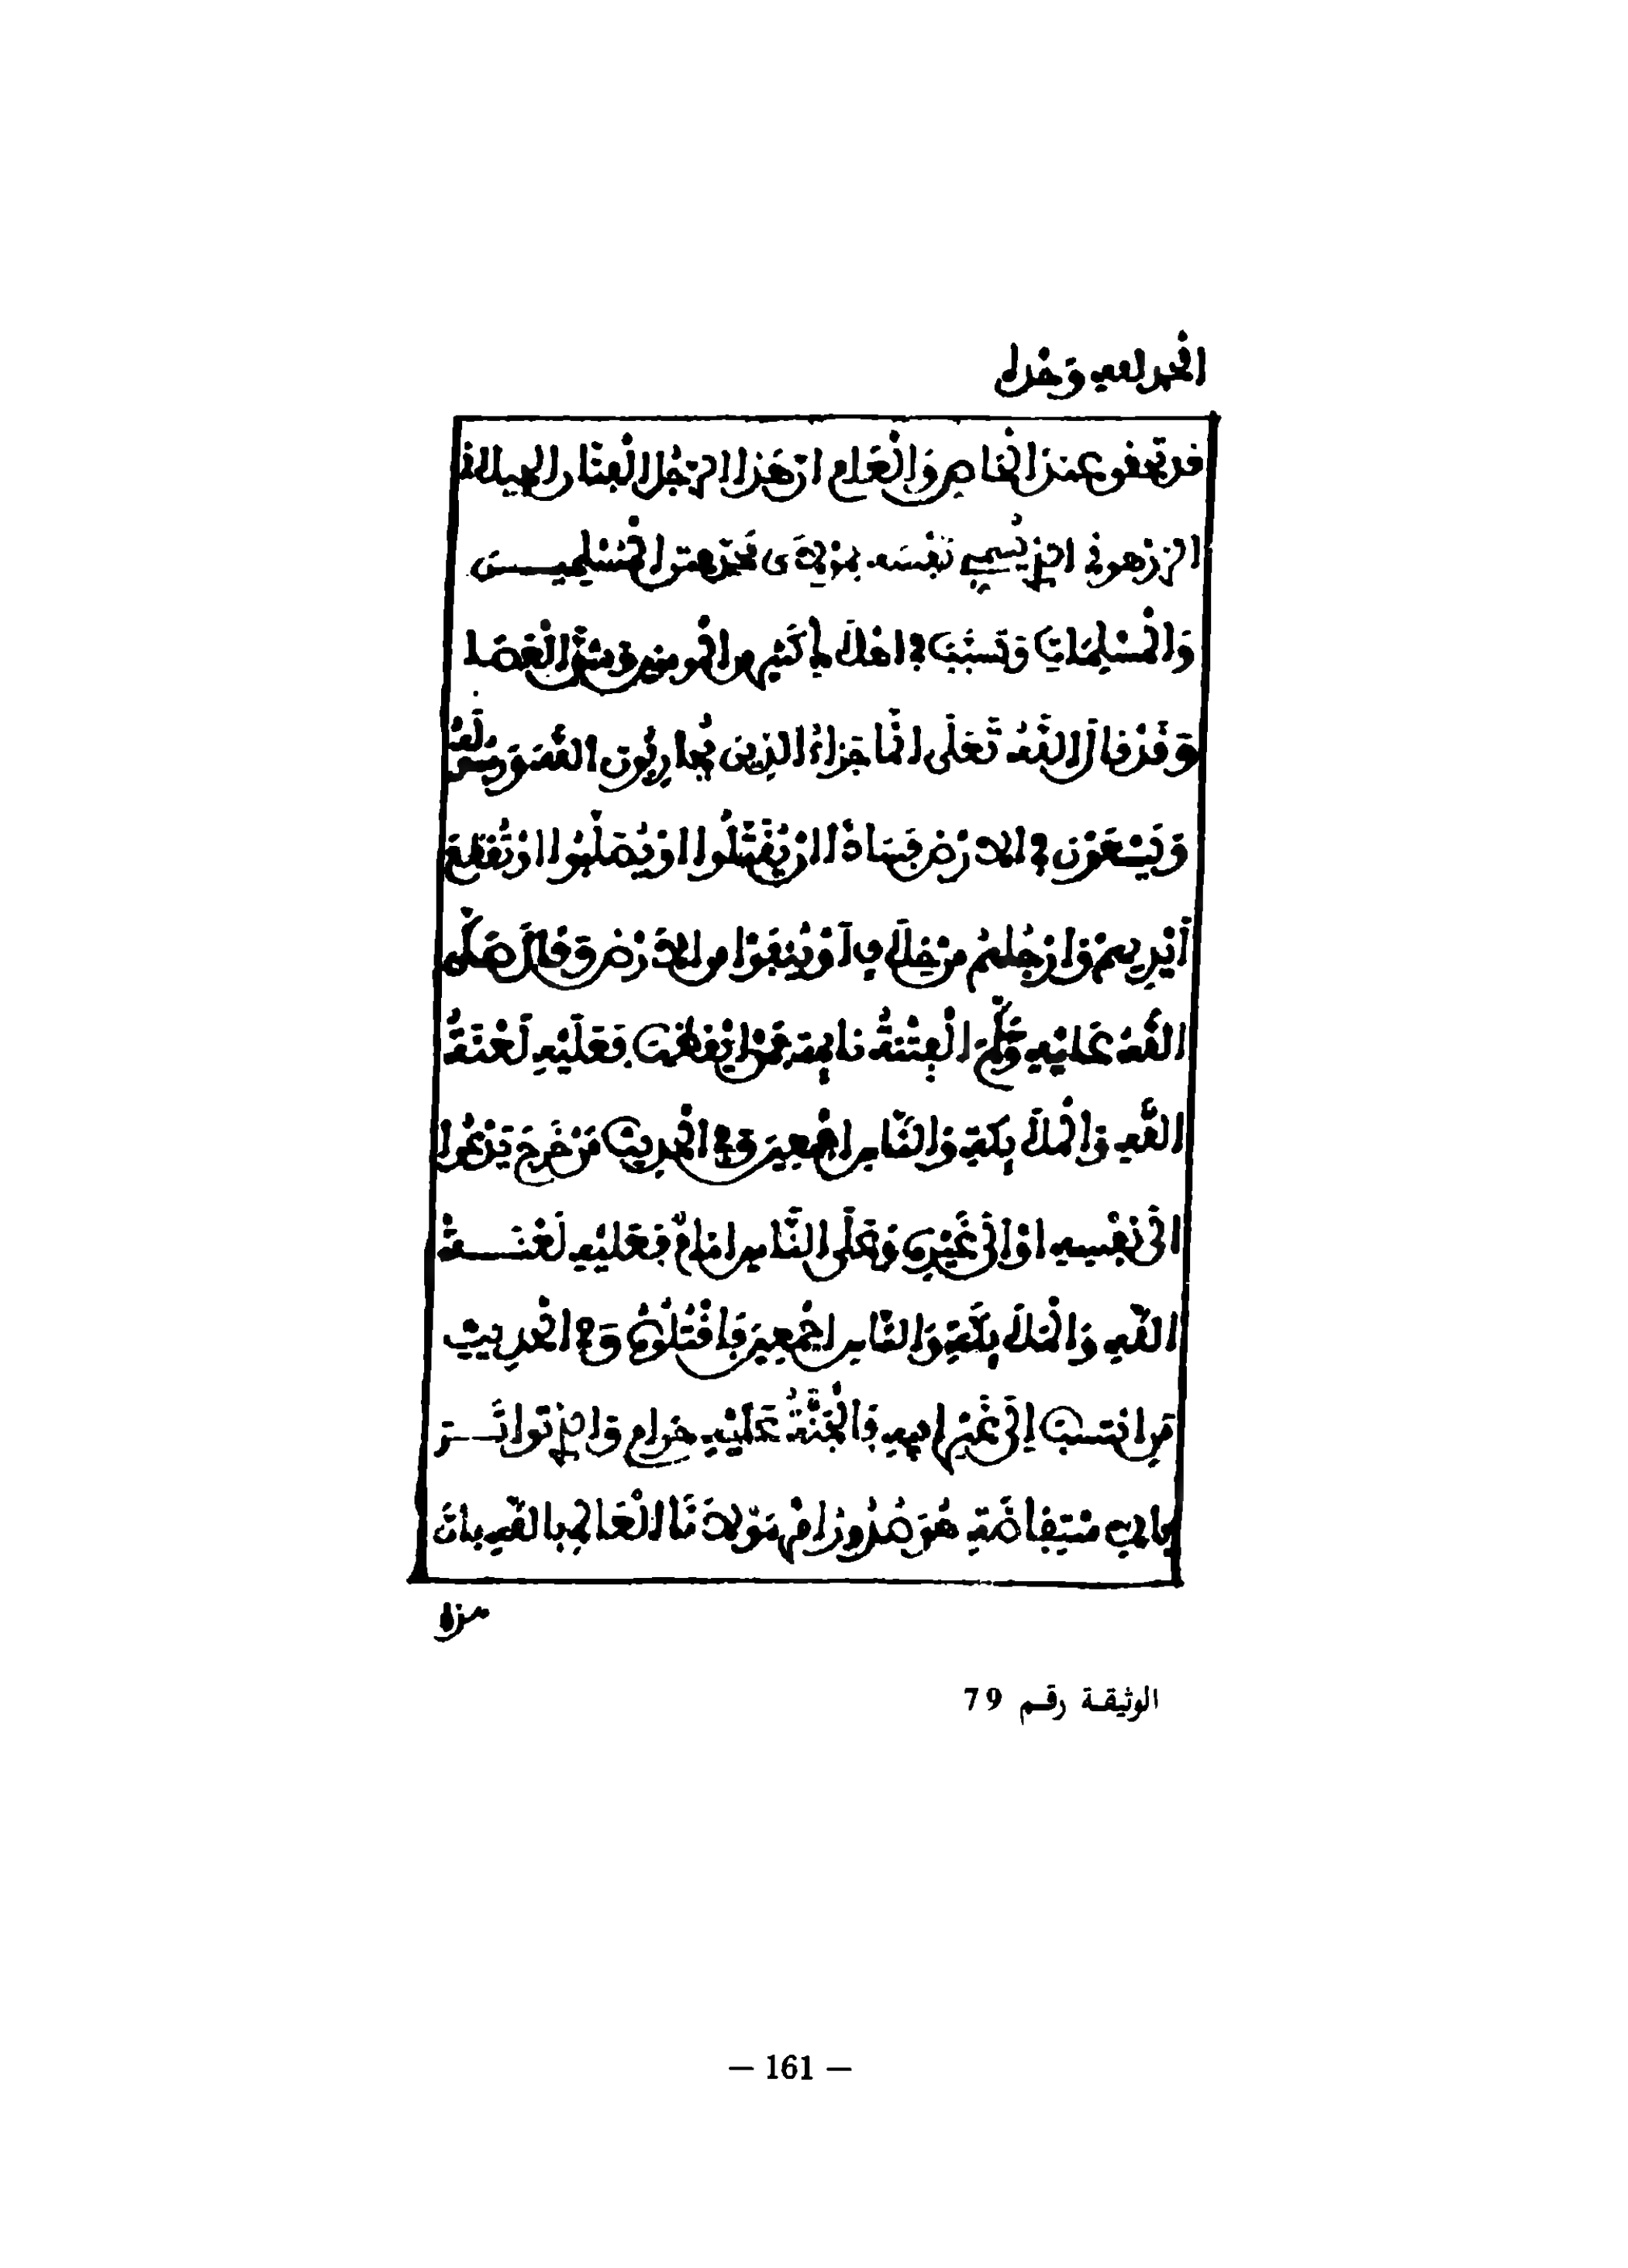 الحمد لله وحده
قد تحقق عند الخاص والعام ان هذا الرجل الفتان الجيلالي
الزرهوني الذي يسمي نفسه بمولاي محمد هتن المسلمين
والمسلمات وتسبب في اهلاك كثير من المومنين وشق العصا
وقد قال الله تعلى انما جزاء الذين يحاربون الله ورسوله
ويسعون في الارض فسادا ان يقتلوا او يصلبوا او تقطع
أيديهم وارجلهم من خلاف أو ينفوا من الارض وقال صلى
الله عليه وسلم الفتنة نايمة فمن ايقظها فعليه لعنة
الله والملايكة والناس اجمعين وفي الحديث من خرج يدعوا
الى نفسه او الى غيره وعلى الناس امام فعليه لعنة
الله والملايكة والناس اجمعين فاقتلوه وفي الحديث
من انتسب الى غير ابيه فالجنة عليه حرام والذي تواتر
هو ومولانا العالم بالله بان
هذا
الوثيقة رقم 79
– 161 –